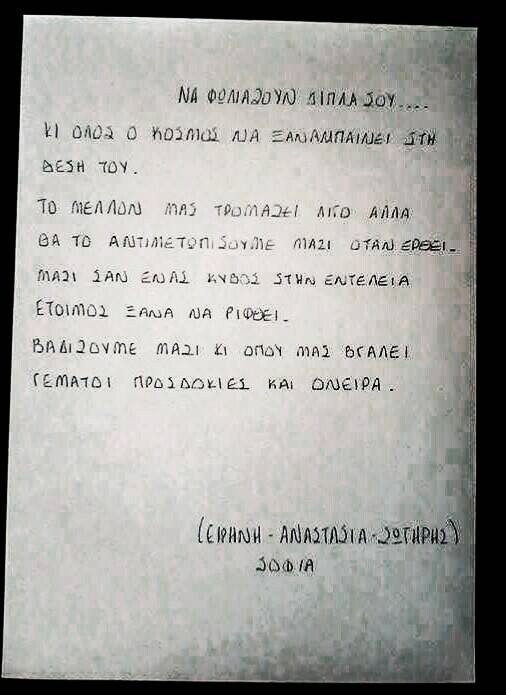 ΝΑ ΦΩΛΙΑΖΟΥΝ ΔΙΠΛΑ ΣΟΥ....
ΚΙ ΟΛΟΣ Ο ΚΟΣΜΟΣ ΝΑ ΞΑΝΑΜΠΑΙΝΕΙ ΣΤΗ
ΘΕΣΗ ΤΟΥ.
ΤΟ ΜΕΛΛΟΝ ΜΑΣ ΤΡΟΜΑΖΕΙ ΛΙΓΟ ΑΛΛΑ
ΘΑ ΤΟ ΑΝΤΙΜΕΤΩΠΙΣΟΥΜΕ ΜΑΖΙ ΟΤΑΝ ΕΡΘΕΙ.
ΜΑΖΙ ΣΑΝ ΕΝΑΣ ΚΥΒΟΣ ΣΤΗΝ ΕΝΤΕΛΕΙΑ
ΕΤΟΙΜΟΣ ΞΑΝΑ ΝΑ ΡΙΦΘΕΙ.
ΒΑΔΙΖΟΥΜΕ ΜΑΖΙ ΚΙ ΟΠΟΥ ΜΑΣ ΒΓΑΛΕΙ
ΓΕΜΑΤΟΙ ΠΡΟΣΔΟΚΙΕΣ ΚΑΙ ΟΝΕΙΡΑ.
(ΕΙΡΗΝΗ - ΑΝΑΣΤΑΣΙΑ - ΣΩΤΗΡΗΣ)
ΣΟΦΙΑ